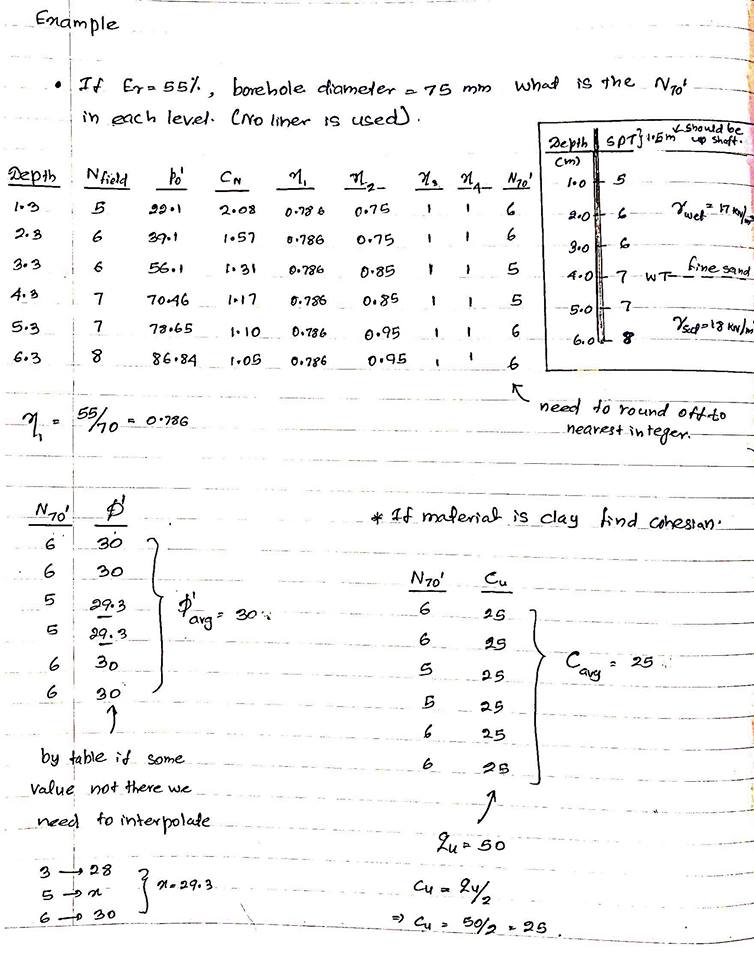 Example
• If Er = 55%, borehole diameter = 75 mm what is the N70'
in each level. (No liner is used).
Depth Nfield Po' CN η1 η2 η3 η4 N70'
1.3 5 22.1 2.08 0.786 0.75 1 1 6
2.3 6 39.1 1.57 0.786 0.75 1 1 6
3.3 6 56.1 1.31 0.786 0.85 1 1 5
4.3 7 70.46 1.17 0.786 0.85 1 1 5
5.3 7 78.65 1.10 0.786 0.95 1 1 6
6.3 8 86.84 1.05 0.786 0.95 1 1 6
need to round off to
nearest integer.
Depth SPT } 1.5m should be
(m) up shaft.
1.0 5
2.0 6 γwet = 17 KN/m
3.0 6
4.0 7 WT fine sand
5.0 7
6.0 8 γsat = 18 KN/m
η1 = 55/70 = 0.786
N70' φ'
6 30
6 30
5 29.3
5 29.3
6 30
6 30
φ'avg = 30
by table if some
value not there we
need to interpolate
3 → 28
5 → x
6 → 30
x = 29.3
* If material is clay find cohesian.
N70' Cu
6 25
6 25
5 25
5 25
6 25
6 25
Cavg = 25
qu = 50
Cu = qu/2
⇒ Cu = 50/2 = 25.